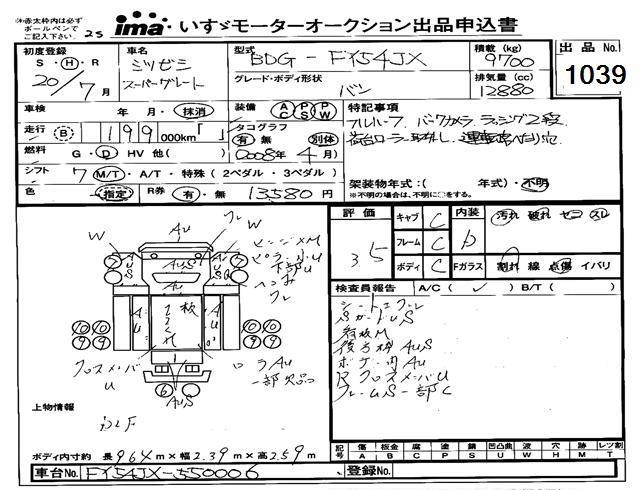 (※)赤太枠内は必ず
ボールペンで
ご記入下さい。
25
ima いすゞモーターオークション出品申込書
初度登録 車名 型式 積載 (kg) 出品 No.
S・H・R ミツビシ BDG-FY54JX 9700 1039
20/7月 スーパーグレート グレード・ボディ形状 排気量 (cc)
バン 12880
車検 年 月・抹消 装備 AC PS PW 特記事項
走行 B 199 000km「 」 タコグラフ 有 無 別体 フルハーフ バックカメラ ラッシング2段
燃料 G・D HV 他( ) 2008年 4月 荷台ローラー取外し、運転席
シフト 7 M/T・A/T・特殊(2ペダル・3ペダル)
架装物年式:( 年式)・不明
色 指定 R券 有・無 13,580円 ※不明の場合は、不明に○をする。
評価 キャブ C 内装 D 汚れ 破れ セコ スレ
3.5 フレーム C
ボディ C Fガラス 割れ 線 点傷 イバリ
検査員報告 A/C( ✓ ) B/T( )
W フレ
AU W ヒンジM
S AUS S ピラー小U
下部U
ヘコみ
フレ
AU 板 AU
10 10 10 10
9 9 9 9
クロスメンバU
AU
一部欠品
6 AUS
シートスレ
Sガードus
後方枠AUS
ボデー内AU
Rクロスメンバu
フレームS一部C
上物情報
記号 傷 板金 腐 塗 錆 凹凸曲 ワイパー 穴 跡 レツ割
A B C P S U W H M T
ボディ内寸約 長 964 m×幅 2.39 m×高 2.59 m
車台No. FY54JX-550006 登録No.